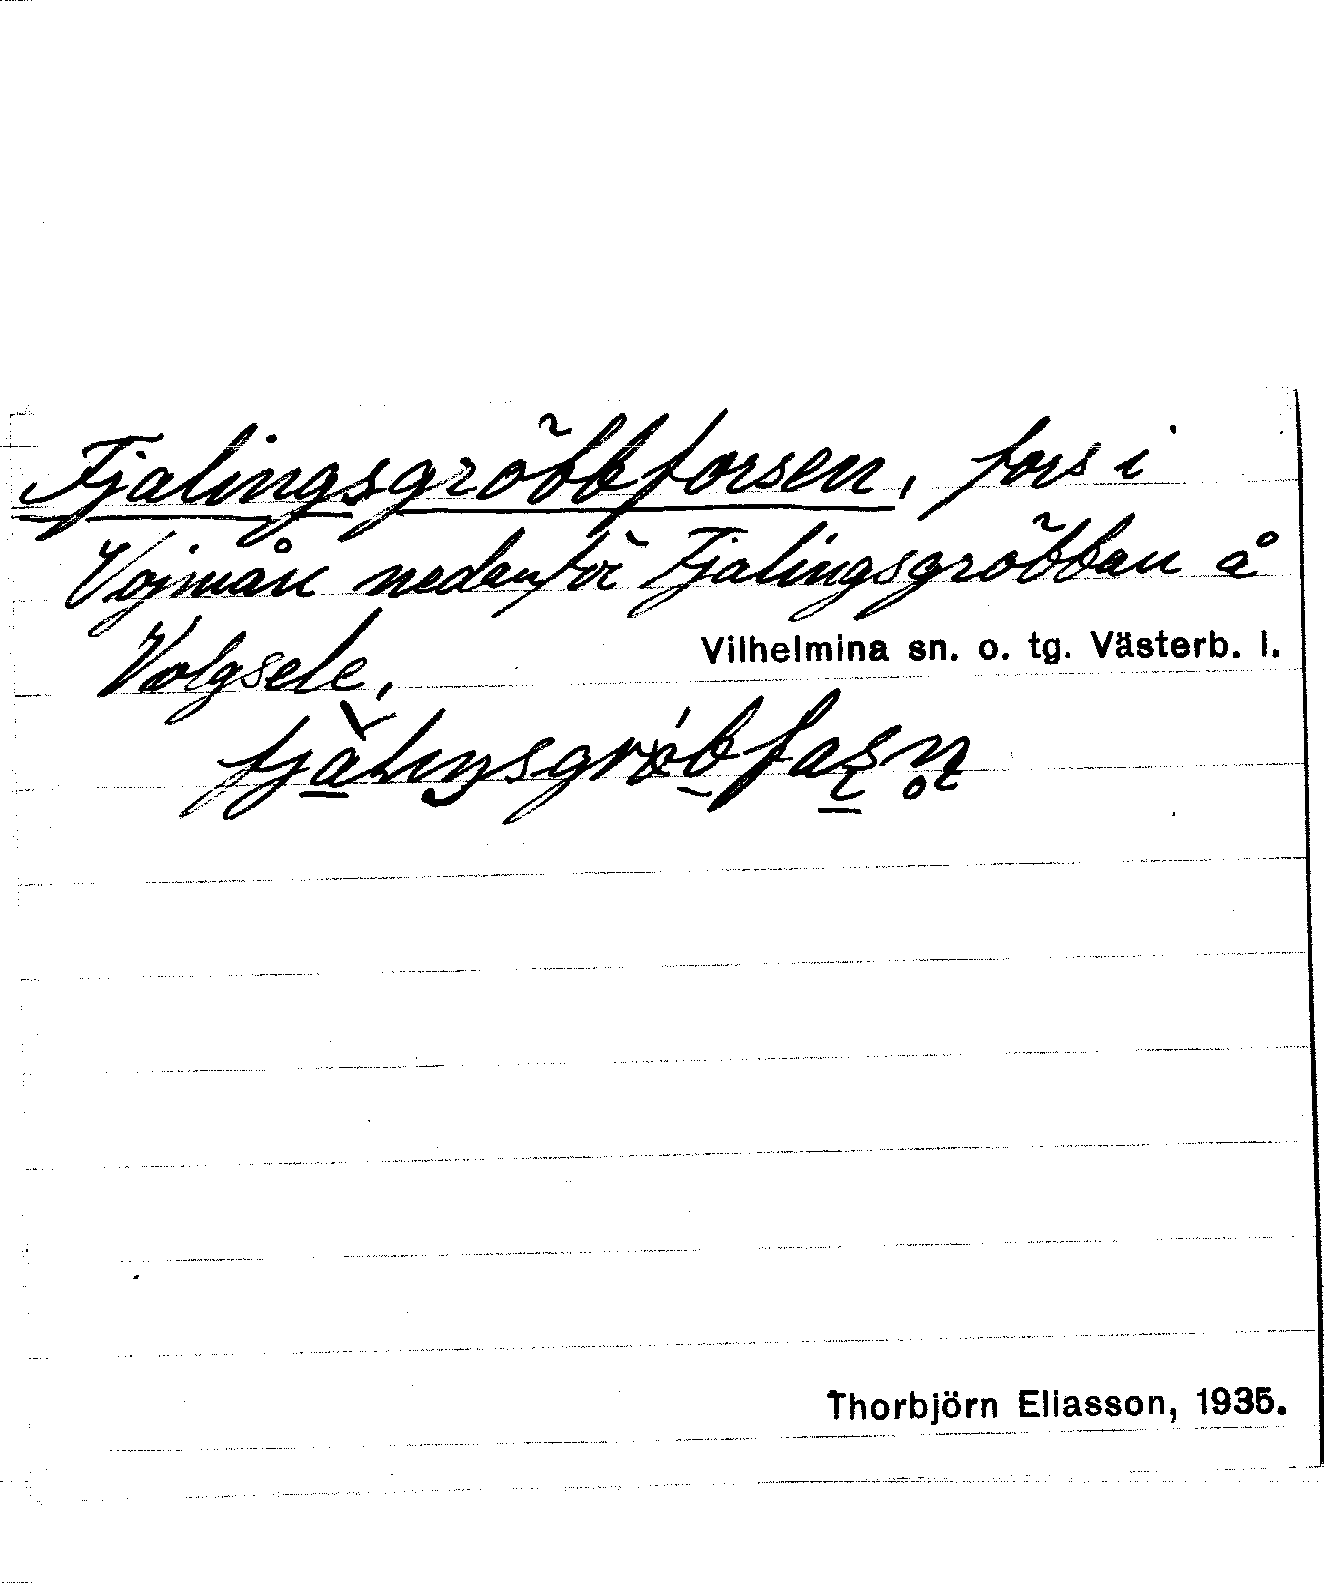 Fjalingsgröbbforsen, fors i
Vojmån nedanför Fjalingsgröbban å
Volgsele.
Vilhelmina sn. o. tg. Västerb. l.
Thorbjörn Eliasson, 1935.